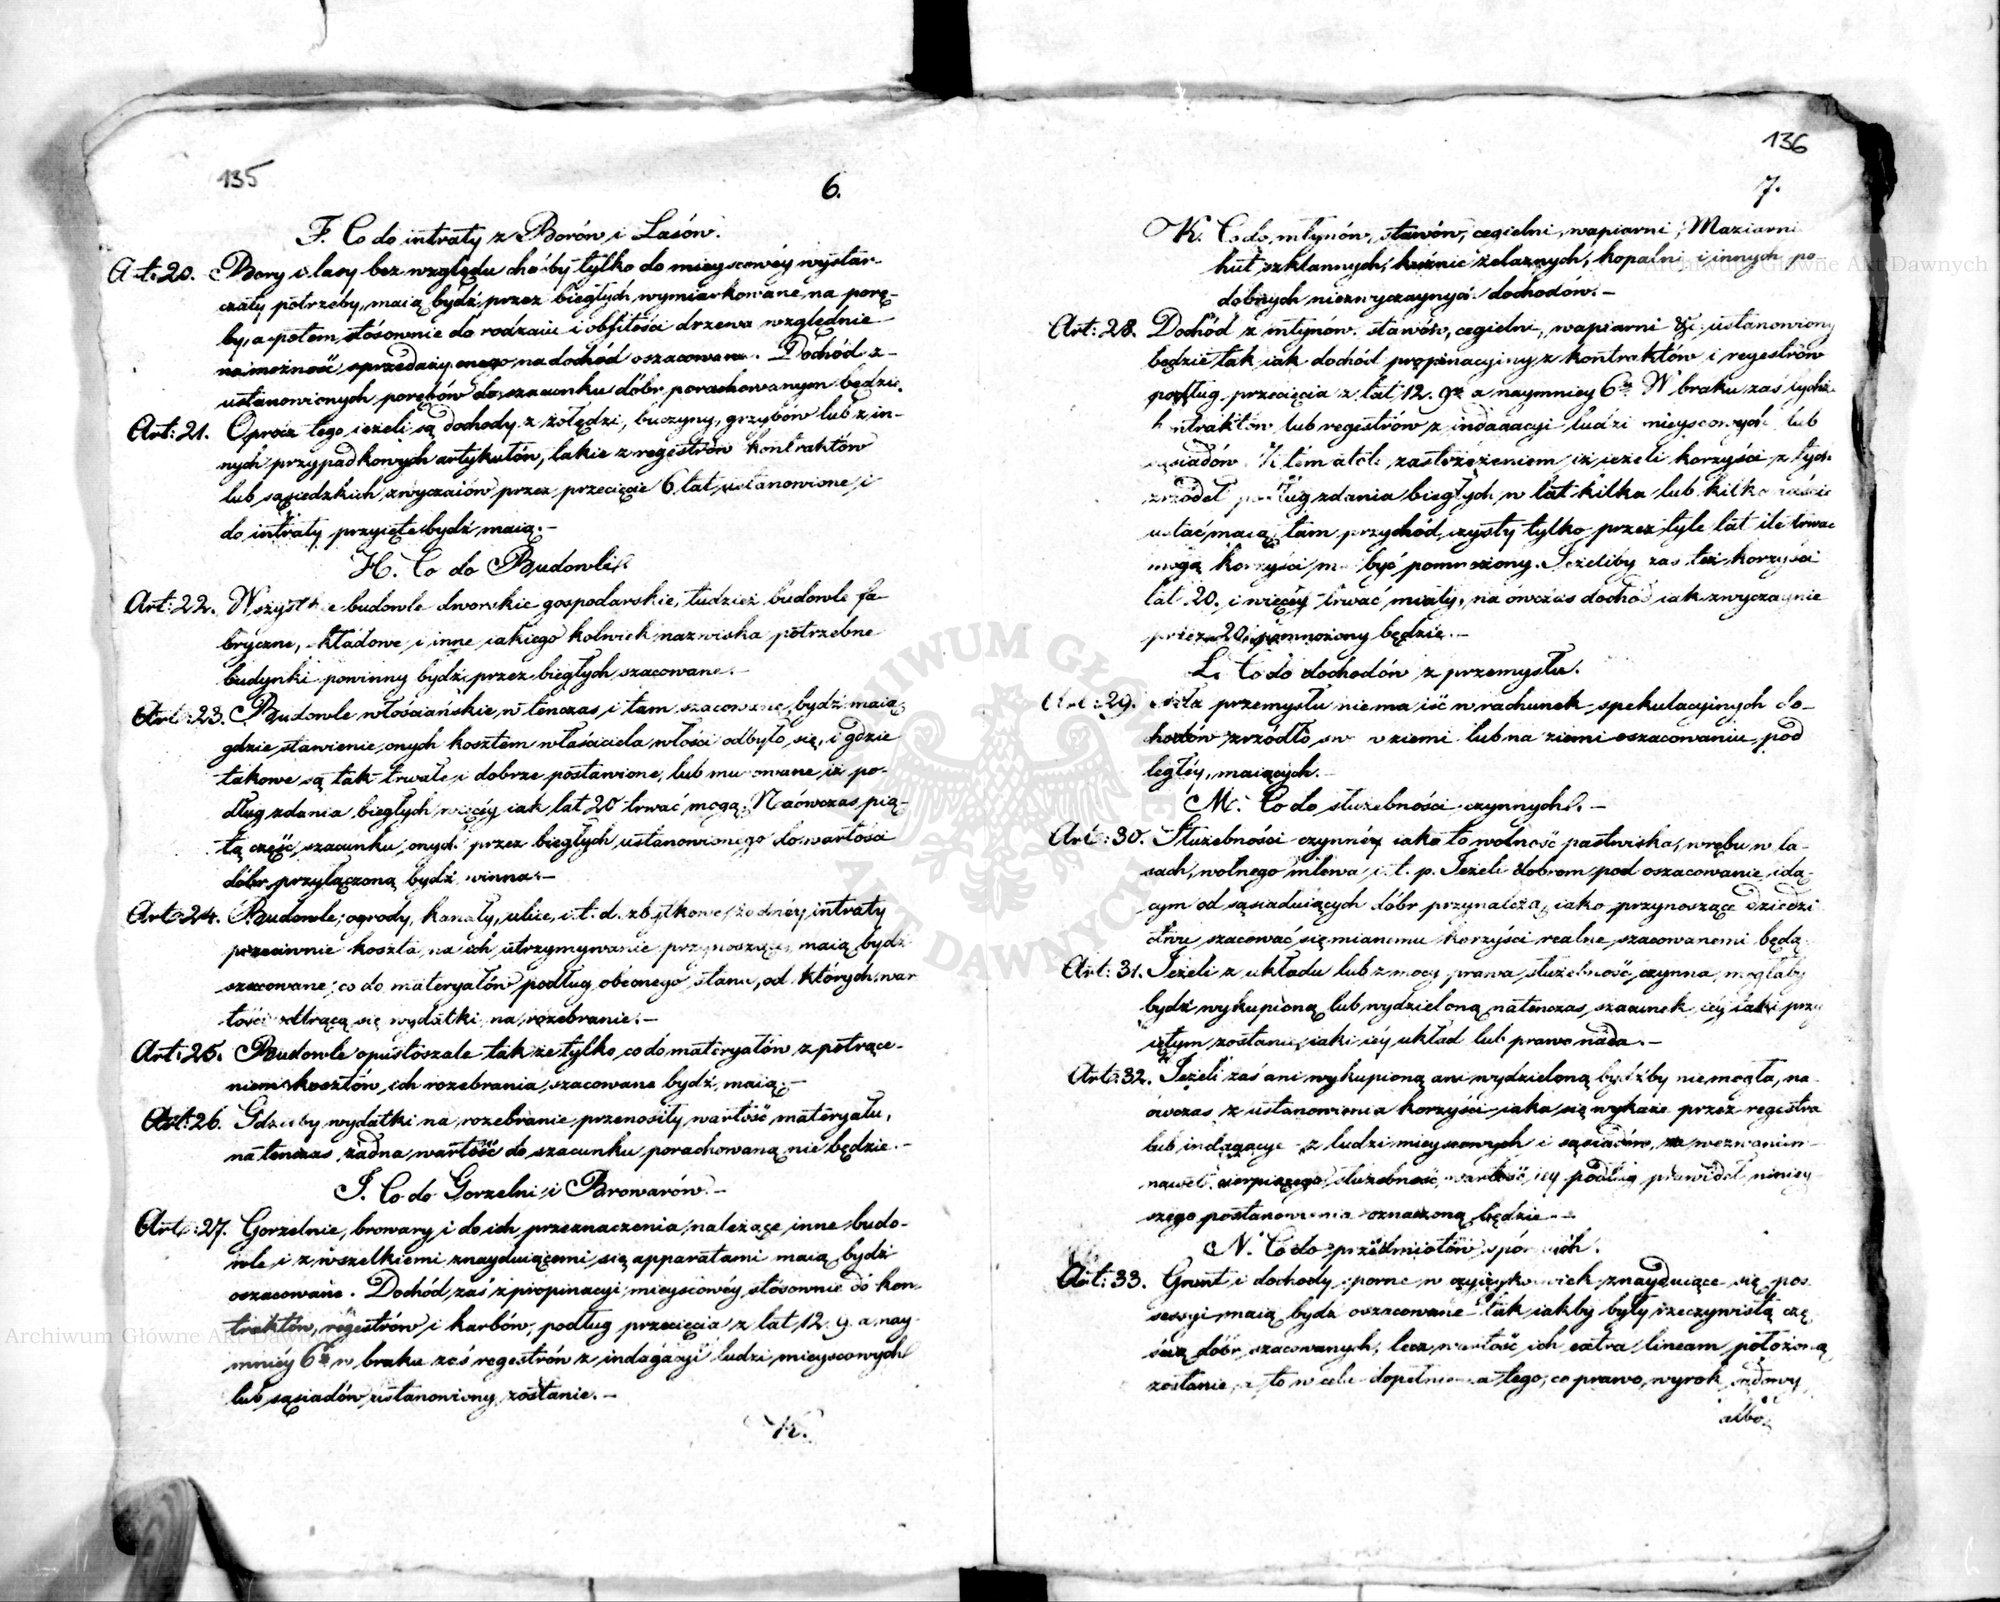 135
6.
F. Co do intraty z Borów i Lasów.
Art: 20. Bory i lasy bez względu choćby tylko do mieyscowéy wystar-
czały potrzeby, maią bydź przez biegłych wymiarkowane na porę-
by, a potem stósownie do rodzaiu i obfitości drzewa względnie
na możność sprzedaży onego na dochód oszacowane. Dochód z-
ustanowionych porębów do szacunku dóbr porachowanym będzie.
Art: 21. Oprócz tego ieżeli są dochody z żołędzi, buczyny, grzybów lub z in-
nych przypadkowych artykułów, takie z regestrów kontraktów
lub sąsiedzkich zwyczaiów przez przecięcie 6 lat ustanowione i
do intraty przyięte bydź maią.-
H. Co do Budowli.
Art: 22. Wszystkie budowle dworskie gospodarskie, tudzież budowle fa-
bryczne, składowe i inne iakiego kolwiek nazwiska potrzebne
budynki powinny bydź przez biegłych szacowane.-
Art: 23. Budowle włościańskie w tenczas i tam szacowane bydź maią,
gdzie stawienie onych kosztem właściciela włości odbyło się, i gdzie
takowe są tak trwałe i dobrze postawione, lub murowane iż po-
dług zdania biegłych więcéy iak lat 20 trwać mogą. Naówczas pią-
tą część szacunku onych przez biegłych ustanowionego do wartości
dóbr przyłączoną bydź winna.-
Art: 24. Budowle, ogrody, kanały, ulice, i.t.d. zbytkowe żadnéy intraty
przeciwnie koszta na ich utrzymywanie przynoszące, maią bydź
szacowane; co do materyałów podług obecnego stanu, od których war
tości odtrącą się wydatki na rozebranie.-
Art: 25. Budowle opustoszałe także tylko co do materyałów z potrące-
niem kosztów ich rozebrania szacowane bydź maią.-
Art: 26. Gdzieby wydatki na rozebranie przenosiły wartość materyału,
na tenczas żadna wartość do szacunku porachowaną nie będzie.-
I. Co do Gorzelni i Browarów.-
Art: 27. Gorzelnie, browary i do ich przeznaczenia należące inne budo-
wle i z wszelkiemi znayduiącemi się apparatami maią bydź
oszacowane. Dochód zaś z propinacyi mieyscowéy stósownie do kon-
traktów, regestrów i karbów, podług przecięcia z lat 12. 9. a nay-
mniéy 6 w braku zaś regestrów z indagacyi ludzi mieyscowych
lub sąsiadów ustanowiony zostanie.-
K.
136
7.
K. Co do młynów, stawów, cegielni, wapiarni, Maziarni
hut szklannych, kuźnic żelaznych, kopalni i innych po-
dobnych niezwyczaynych dochodów.-
Art: 28. Dochód z młynów, stawów, cegielni, wapiarni &c ustanowiony
będzie tak iak dochód propinacyiny z kontraktów i regestrów
podług przecięcia z lat 12. 9 a naymniey 6 W braku zaś tychże
kontraktów lub regestrów z indagacyi ludzi mieyscowych lub
sąsiadów. Z tém atoli zastrzeżeniem iż ieżeli korzyści z tych
zrzódeł podług zdania biegłych w lat kilka lub kilkanaście
ustać maią, tam przychód czysty tylko przez tyle lat ile trwać
mogą korzyści ma być pomnożony. Jeżeliby zaś też korzyści
lat 20. i więcéy trwać miały, na ówczas dochód iak zwyczaynie
przez 20 pomnożony będzie.-
L. Co do dochodów z przemysłu.
Art: 29. przemysłu nie ma iść w rachunek spekulacyinych do-
chodów zrzódło swe w ziemi lub na ziemi oszacowaniu pod
ległéy, maiących.
M. Co do służebności czynnych.-
Art: 30. Służebności czynne iako to wolność pastwiska, wrębu w la-
sach, wolnego mlewa i.t.p. Jeżeli dobrom pod oszacowanie idą-
cym od sąsiaduiących dóbr przynależą, iako przynoszące dziedzi
ctwu szacować się mianemu korzyści realne szacowanemi będą.
Art: 31. Jeżeli z układu lub z mocy prawa służebność czynna mogłaby
bydź wykupioną lub wydzieloną natenczas szacunek iéy taki przy
iętym zostanie iaki iéy układ lub prawo nada.-
Art: 32. Jeżeli zaś ani wykupioną ani wydzieloną bydźby nie mogła, na
ówczas z ustanowienia korzyści iaka się wykaże przez regestra
lub indagacye z ludzi mieyscowych i sąsiadów, za wezwaniem
nawet cierpiącego służebność, wartość iéy podług prawideł niniey
szego postanowienia oznaczoną będzie.-
N. Co do przedmiotów spornych.
Art: 33. Grunt i dochody sporne w czyieykolwiek znayduiące się pos
sessyi maią bydź oszacowane tak iakby były rzeczywistą czę
ścią dóbr szacowanych, lecz wartość ich extra lineam położoną
zostanie, a to w celu dopełnienia tego, co prawo, wyrok sądowy
albo
Archiwum Główne Akt Dawnych
Archiwum Główne Akt Dawnych
ARCHIWUM GŁÓWNE AKT DAWNYCH